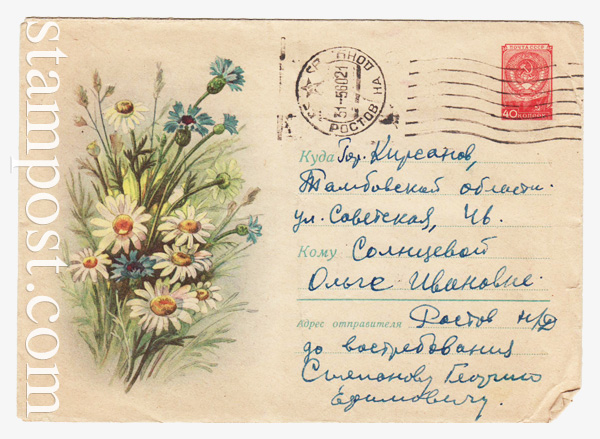 stampost.com
ПОЧТА СССР
40 КОПЕЕК
РОСТОВ НА ДОНУ
31-5 6021
Куда Гор. Кирсанов,
Тамбовской области.
ул. Советская, 46.
Кому Солнцевой
Ольге Ивановне.
Адрес отправителя Ростов н/Д
до востребования
Степанову Георгию
Ефимовичу.